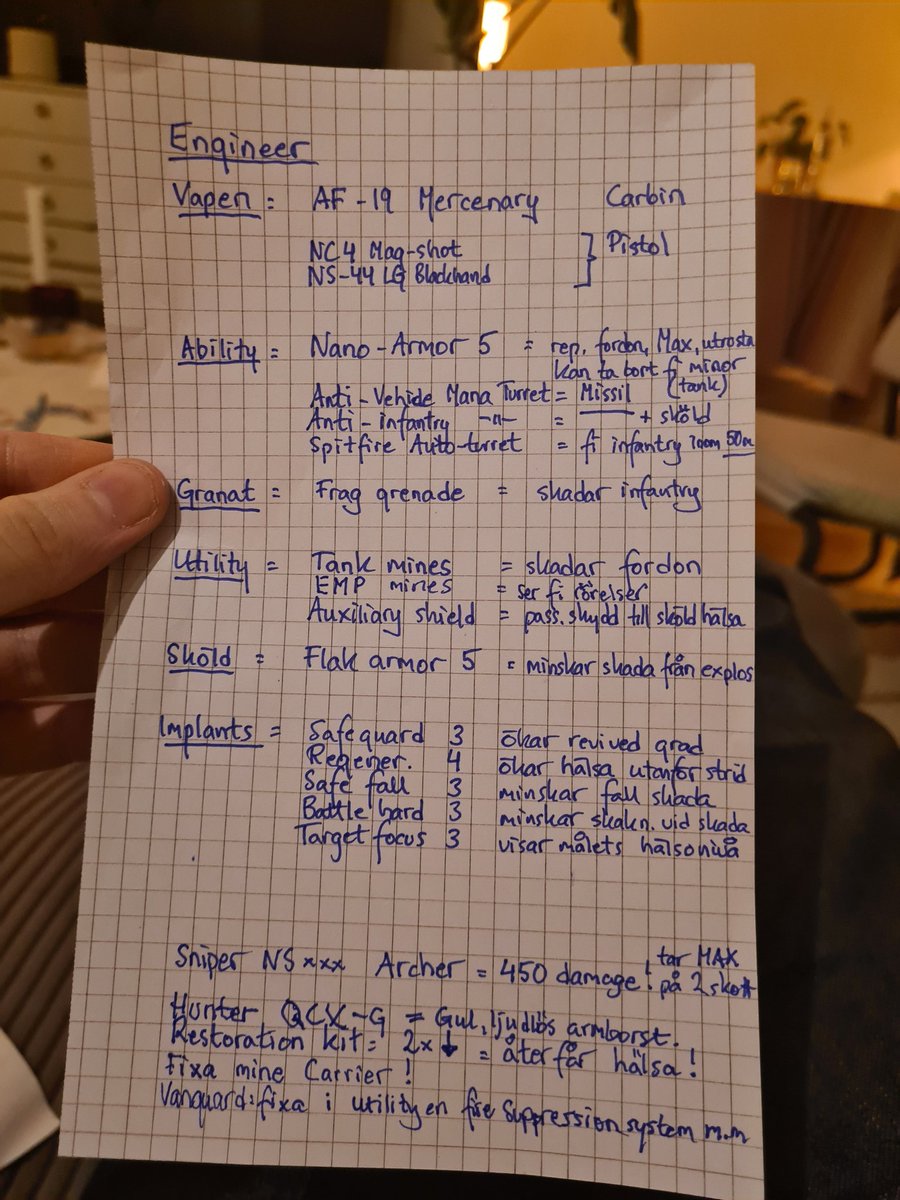 Engineer
Vapen = AF-19 Mercenary Carbin
NC4 Mag-shot } Pistol
NS-44 LG Blackhand
Ability = Nano-Armor 5 = rep. fordon, Max, utrosta
kan ta bort fi minor
Anti-Vehicle Mana Turret = Missil (tank)
Anti-infantry -"- = + sköld
Spitfire Auto-turret = fi infantry inom 50m
Granat = Frag grenade = skadar infantry
Utility = Tank mines = skadar fordon
EMP mines = ser fi rörelser
Auxiliary shield = pass. skydd till sköld hälsa
Sköld = Flak armor 5 = minskar skada från explos
Implants = Safeguard 3 ökar revived grad
Regener. 4 ökar hälsa utanför strid
Safe fall 3 minskar fall skada
Battle hard 3 minskar skakn. vid skada
Target focus 3 visar målets hälsonivå
Sniper NSxxx Archer = 450 damage! tar MAX
på 2 skott
Hunter QCX-G = Gul, ljudlös armborst.
Restoration kit = 2x ↓ = återfår hälsa!
Fixa mine Carrier!
Vanguard: fixa i utilityen fire suppression system m.m